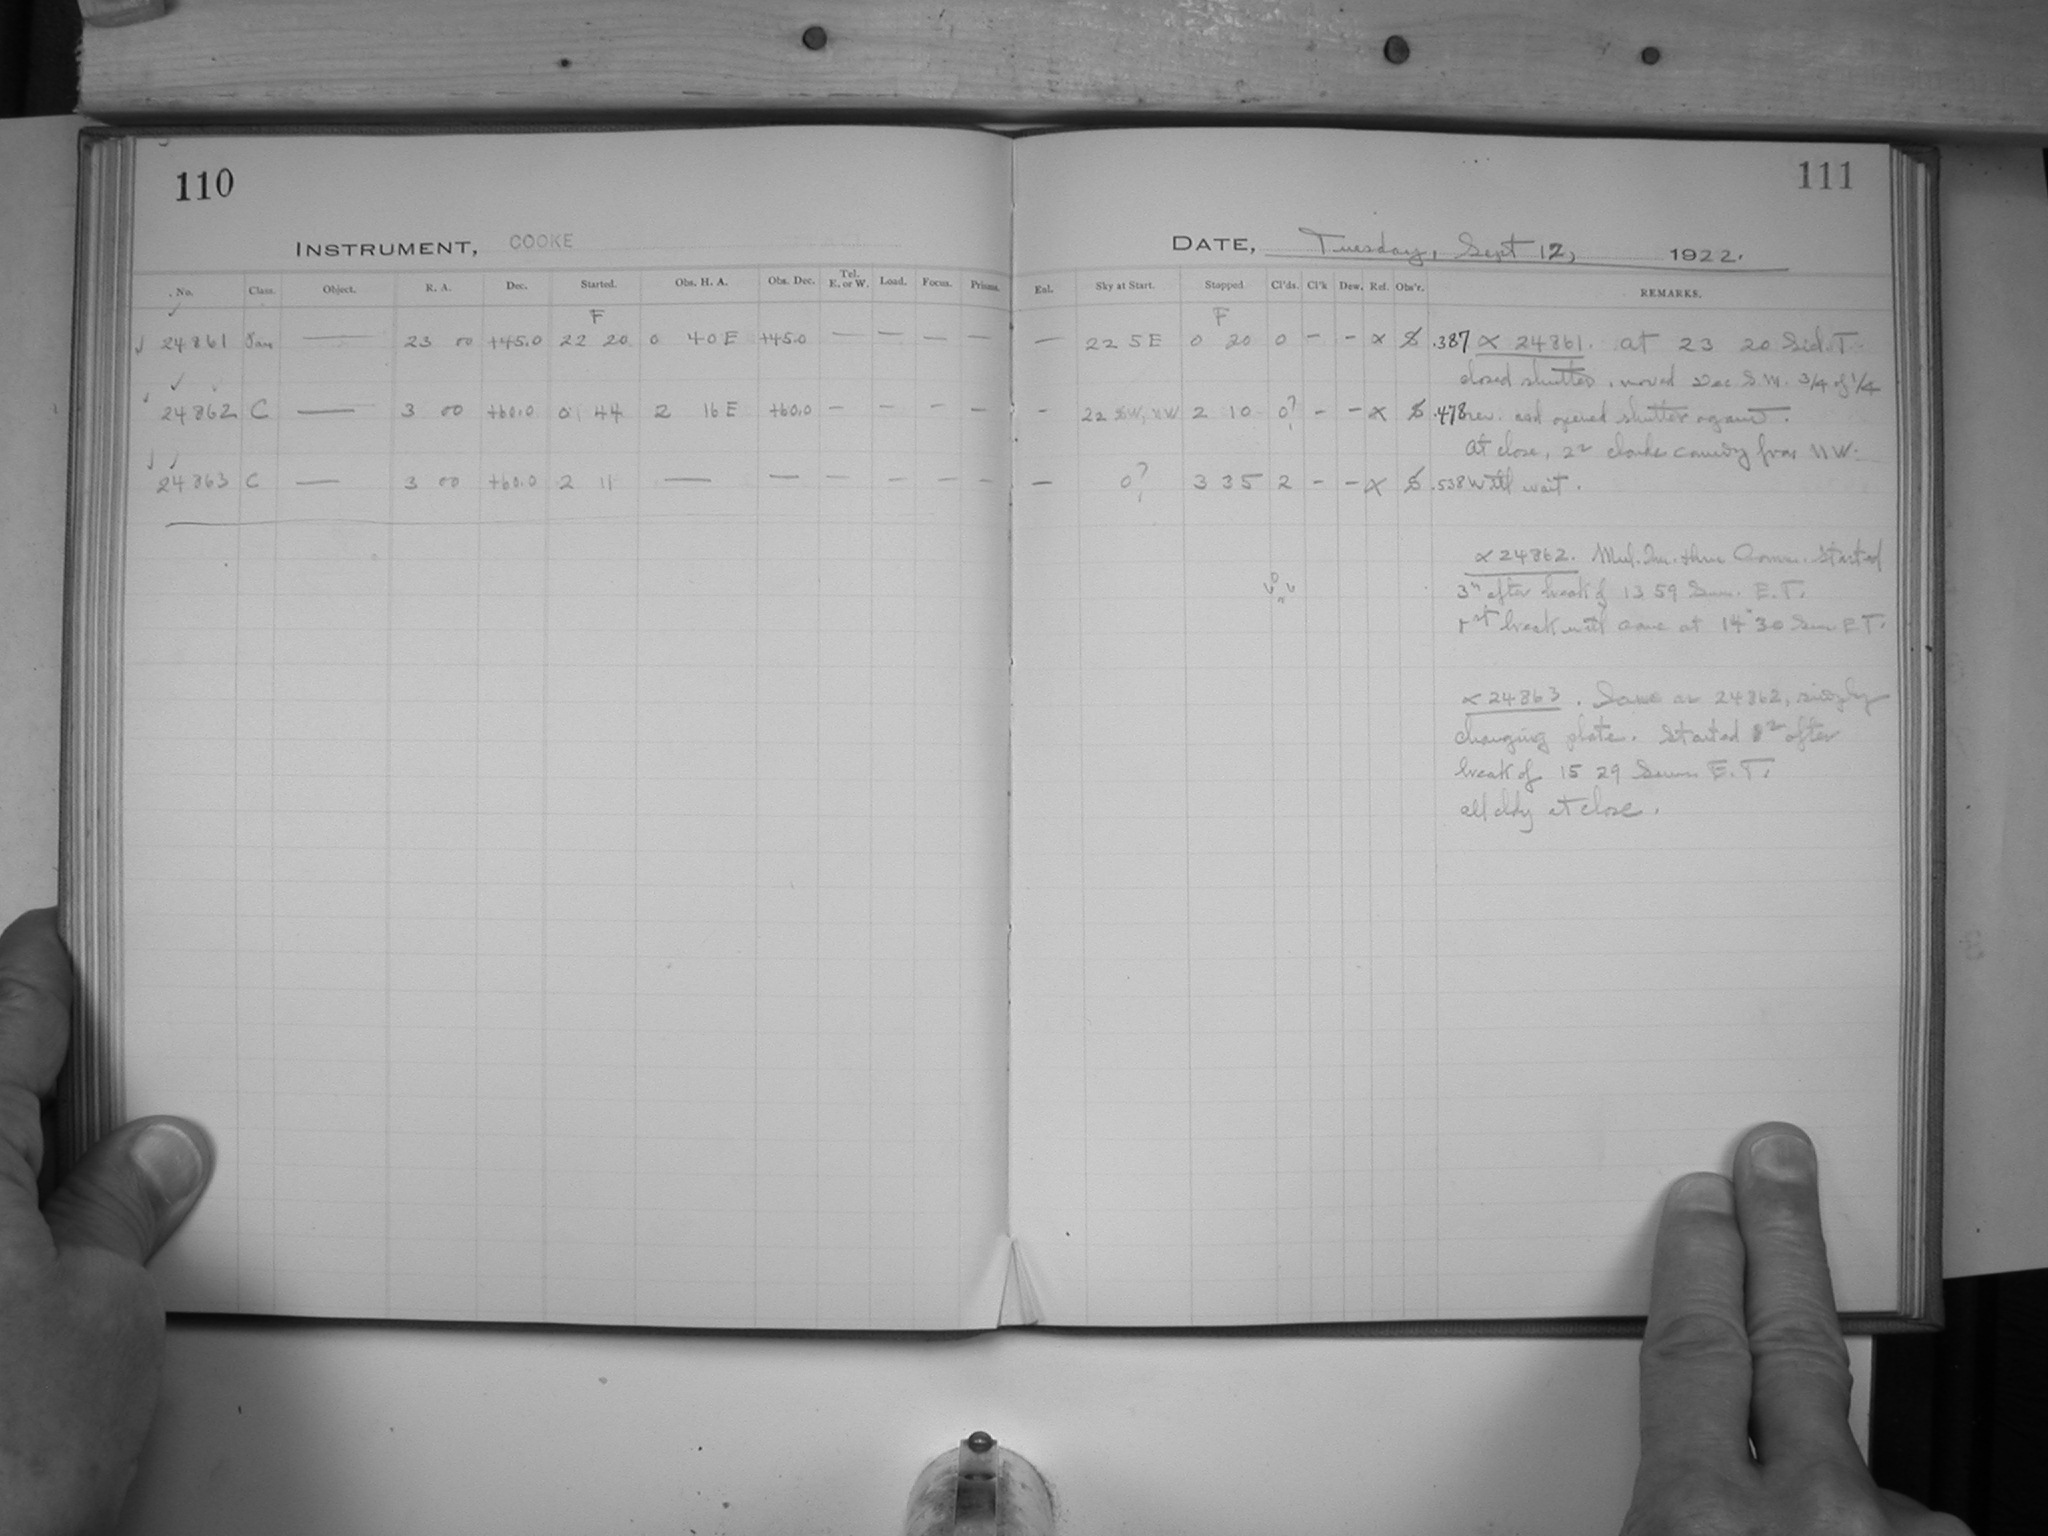 110
111
INSTRUMENT, COOKE
DATE, Tuesday, Sept 12, 1922.
No. Class. Object. R. A. Dec. Started. Obs. H. A. Obs. Dec. Tel. E. or W. Load. Focus. Prisms. Eal. Sky at Start. Stopped Cl'ds. Cl'k Dew. Ref. Obs'r. REMARKS.
F F
24861 — 23 00 +45.0 22 20 0 40 E +45.0 — — — — — 22 5 E 0 20 0 - - x S .387 α 24861. at 23 20 Sid. T.
closed shutter, moved Dec S.M. 3/4 of 1/4
24862 C — 3 00 +60.0 0 44 2 16 E +60.0 — — — — - 22 SW, NW 2 10 0? - - x S .478 rev. and opened shutter again.
At close, 22 clouds coming from NW.
24863 C — 3 00 +60.0 2 11 — — — — — — — 0? 3 35 2 - - x S .538 Will wait.
α 24862. started
3m after break of 13 59 E.T.
1st break with at 14 30 E T.
α 24863. Same as 24862, simply
changing plate. Started after
break of 15 29 E. T.
all cldy at close.